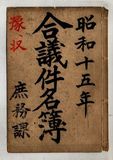 昭和十五年
合議件名簿
庶務課